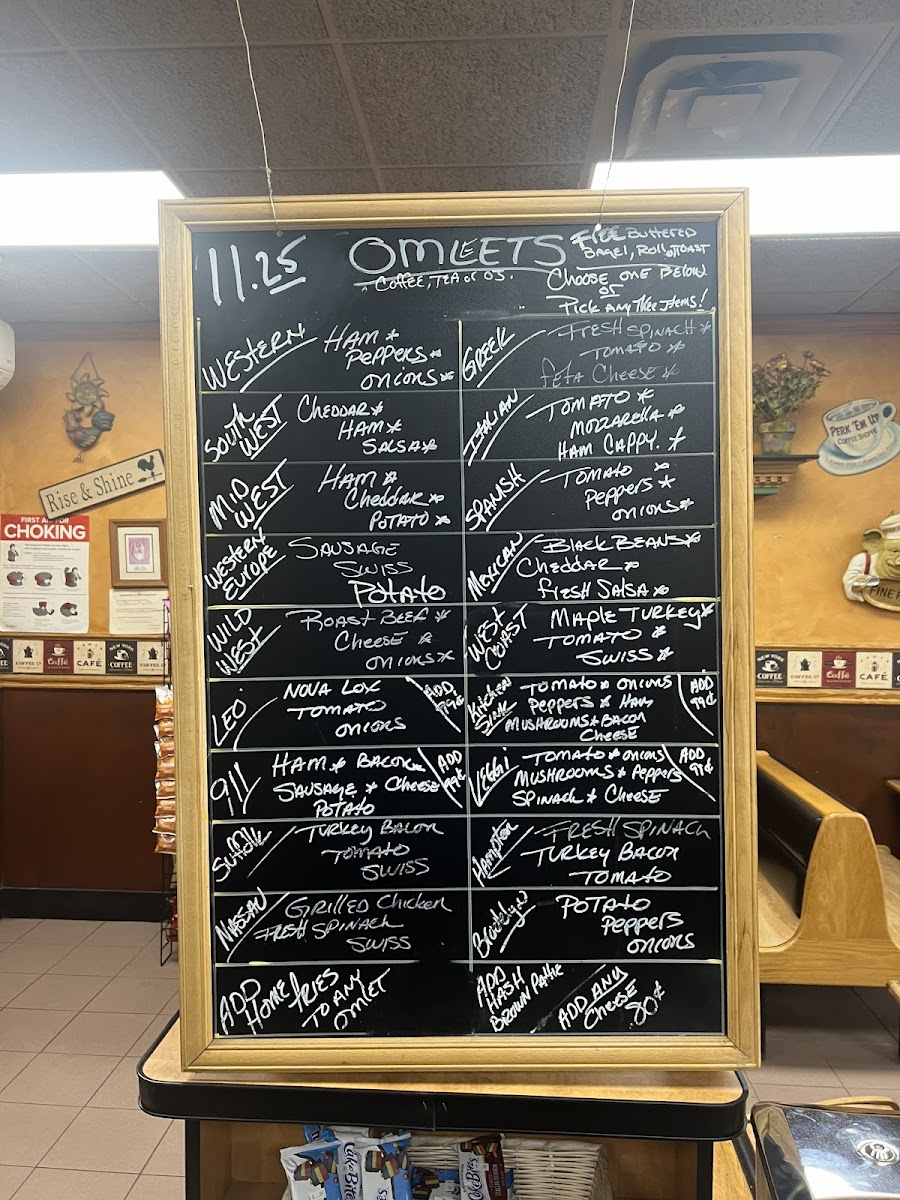 11.25
OMLEETS
Coffee, TEA or OJ.
FREE BUTTERED
BAGEL, ROLL, or TOAST
CHOOSE ONE BELOW
or
PICK ANY THEE ITEMS!
WESTERN
HAM *
PEPPERS *
ONIONS *
GREEK
FRESH SPINACH *
TOMATO *
feta CHEESE *
SOUTH WEST
CHEDDAR *
HAM *
SALSA *
ITALIAN
TOMATO *
MOZZARELLA *
HAM CAPPY. *
MID WEST
HAM *
Cheddar *
POTATO *
SPANISH
TOMATO *
PEPPERS *
ONIONS *
WESTERN EUROPE
SAUSAGE
SWISS
POTATO
MEXICAN
BLACK BEANS *
CHEDDAR *
fresh SALSA *
WILD WEST
ROAST BEEF *
CHEESE *
ONIONS *
WEST COAST
MAPLE TURKEY *
TOMATO *
SWISS *
LEO
NOVA LOX
TOMATO
ONIONS
ADD 99¢
KITCHEN SINK
TOMATO * ONIONS
PEPPERS * HAM
MUSHROOMS * BACON
CHEESE
ADD 99¢
911
HAM * BACON *
SAUSAGE * CHEESE
POTATO
ADD 99¢
VEGGI
TOMATO * ONIONS
MUSHROOMS * PEPPERS
SPINACH * CHEESE
ADD 99¢
Suffolk
TURKEY BACON
TOMATO
SWISS
HAMPTON
FRESH SPINACH
TURKEY BACON
TOMATO
NASSAU
GRILLED CHICKEN
FRESH SPINACH
SWISS
Brooklyn
POTATO
PEPPERS
ONIONS
ADD
HOME FRIES
TO ANY
OMLET
ADD
HASH
BROWN PATTIE
ADD ANY
CHEESE
80¢
Rise & Shine
FIRST AID FOR
CHOKING
PERK 'EM UP
COFFEE SHOPPE
FINE
COFFEE
Caffé
CAFÉ
NEW YORK
COFFEE
COFFEE
NEW YORK
COFFEE
COFFEE
Caffé
CAFÉ